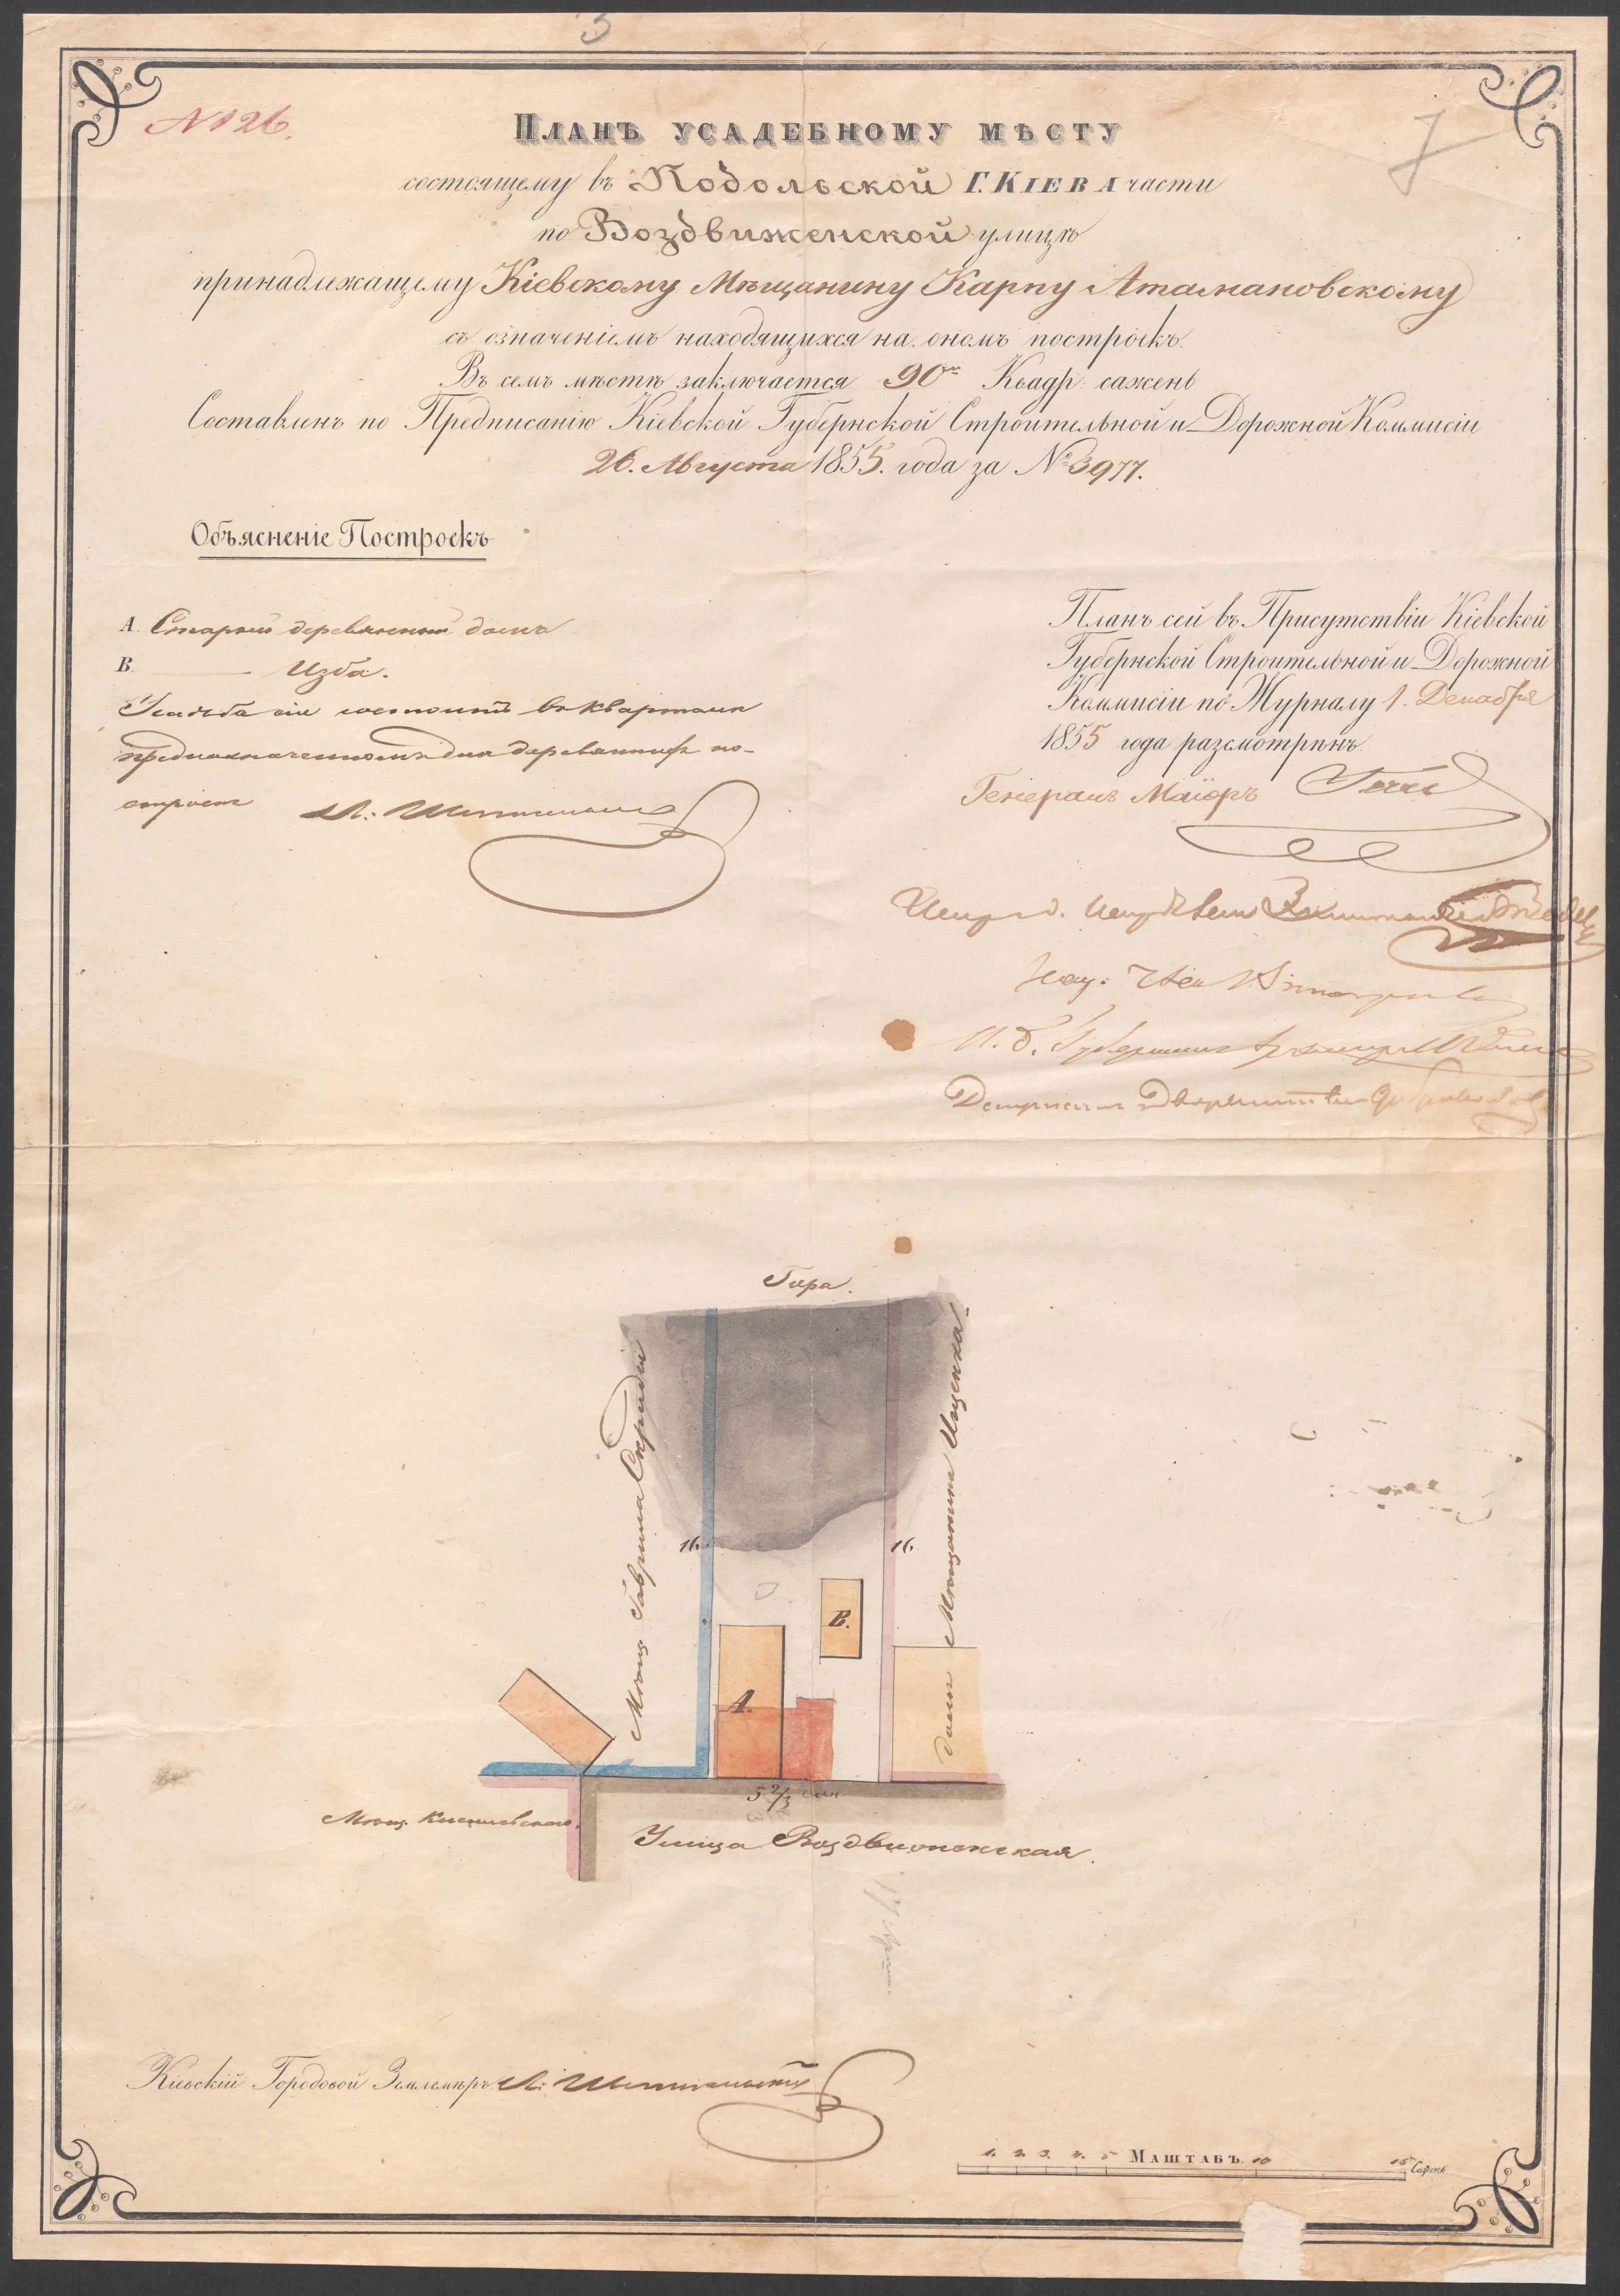 3
№ 26.
7
Планъ усадебному мѣсту
состоящему въ Подольской Г. Кіева части
по Воздвиженской улицѣ
принадлежащему Кіевскому Мѣщанину Карпу Атамановскому
съ означеніемъ находящихся на ономъ построекъ.
Въ семъ мѣстѣ заключается 90 Квадр. сажень
Составленъ по Предписанію Кіевской Губернской Строительной и Дорожной Коммисіи
26. Августа 1855. года за № 3977.
Объясненіе Построекъ
А. Старый деревянный домъ
В. ——— Изба.
Усадьба сія состоитъ въ кварталѣ
предназначенномъ для деревянныхъ по-
строекъ
Планъ сей въ Присутствіи Кіевской
Губернской Строительной и Дорожной
Коммисіи по Журналу 1. Декабря
1855 года разсмотрѣнъ.
Генералъ Маіоръ
Гора.
Мѣщ. Гаврила Скриды
домъ Мѣщанина Ищенка.
16.
16.
В.
А.
5 2/3 саж
Мѣщ.
Улица Воздвиженская.
Кіевскій Городовой Землемѣръ
1. 2. 3. 4. 5 Маштабъ. 10 15 Сажень